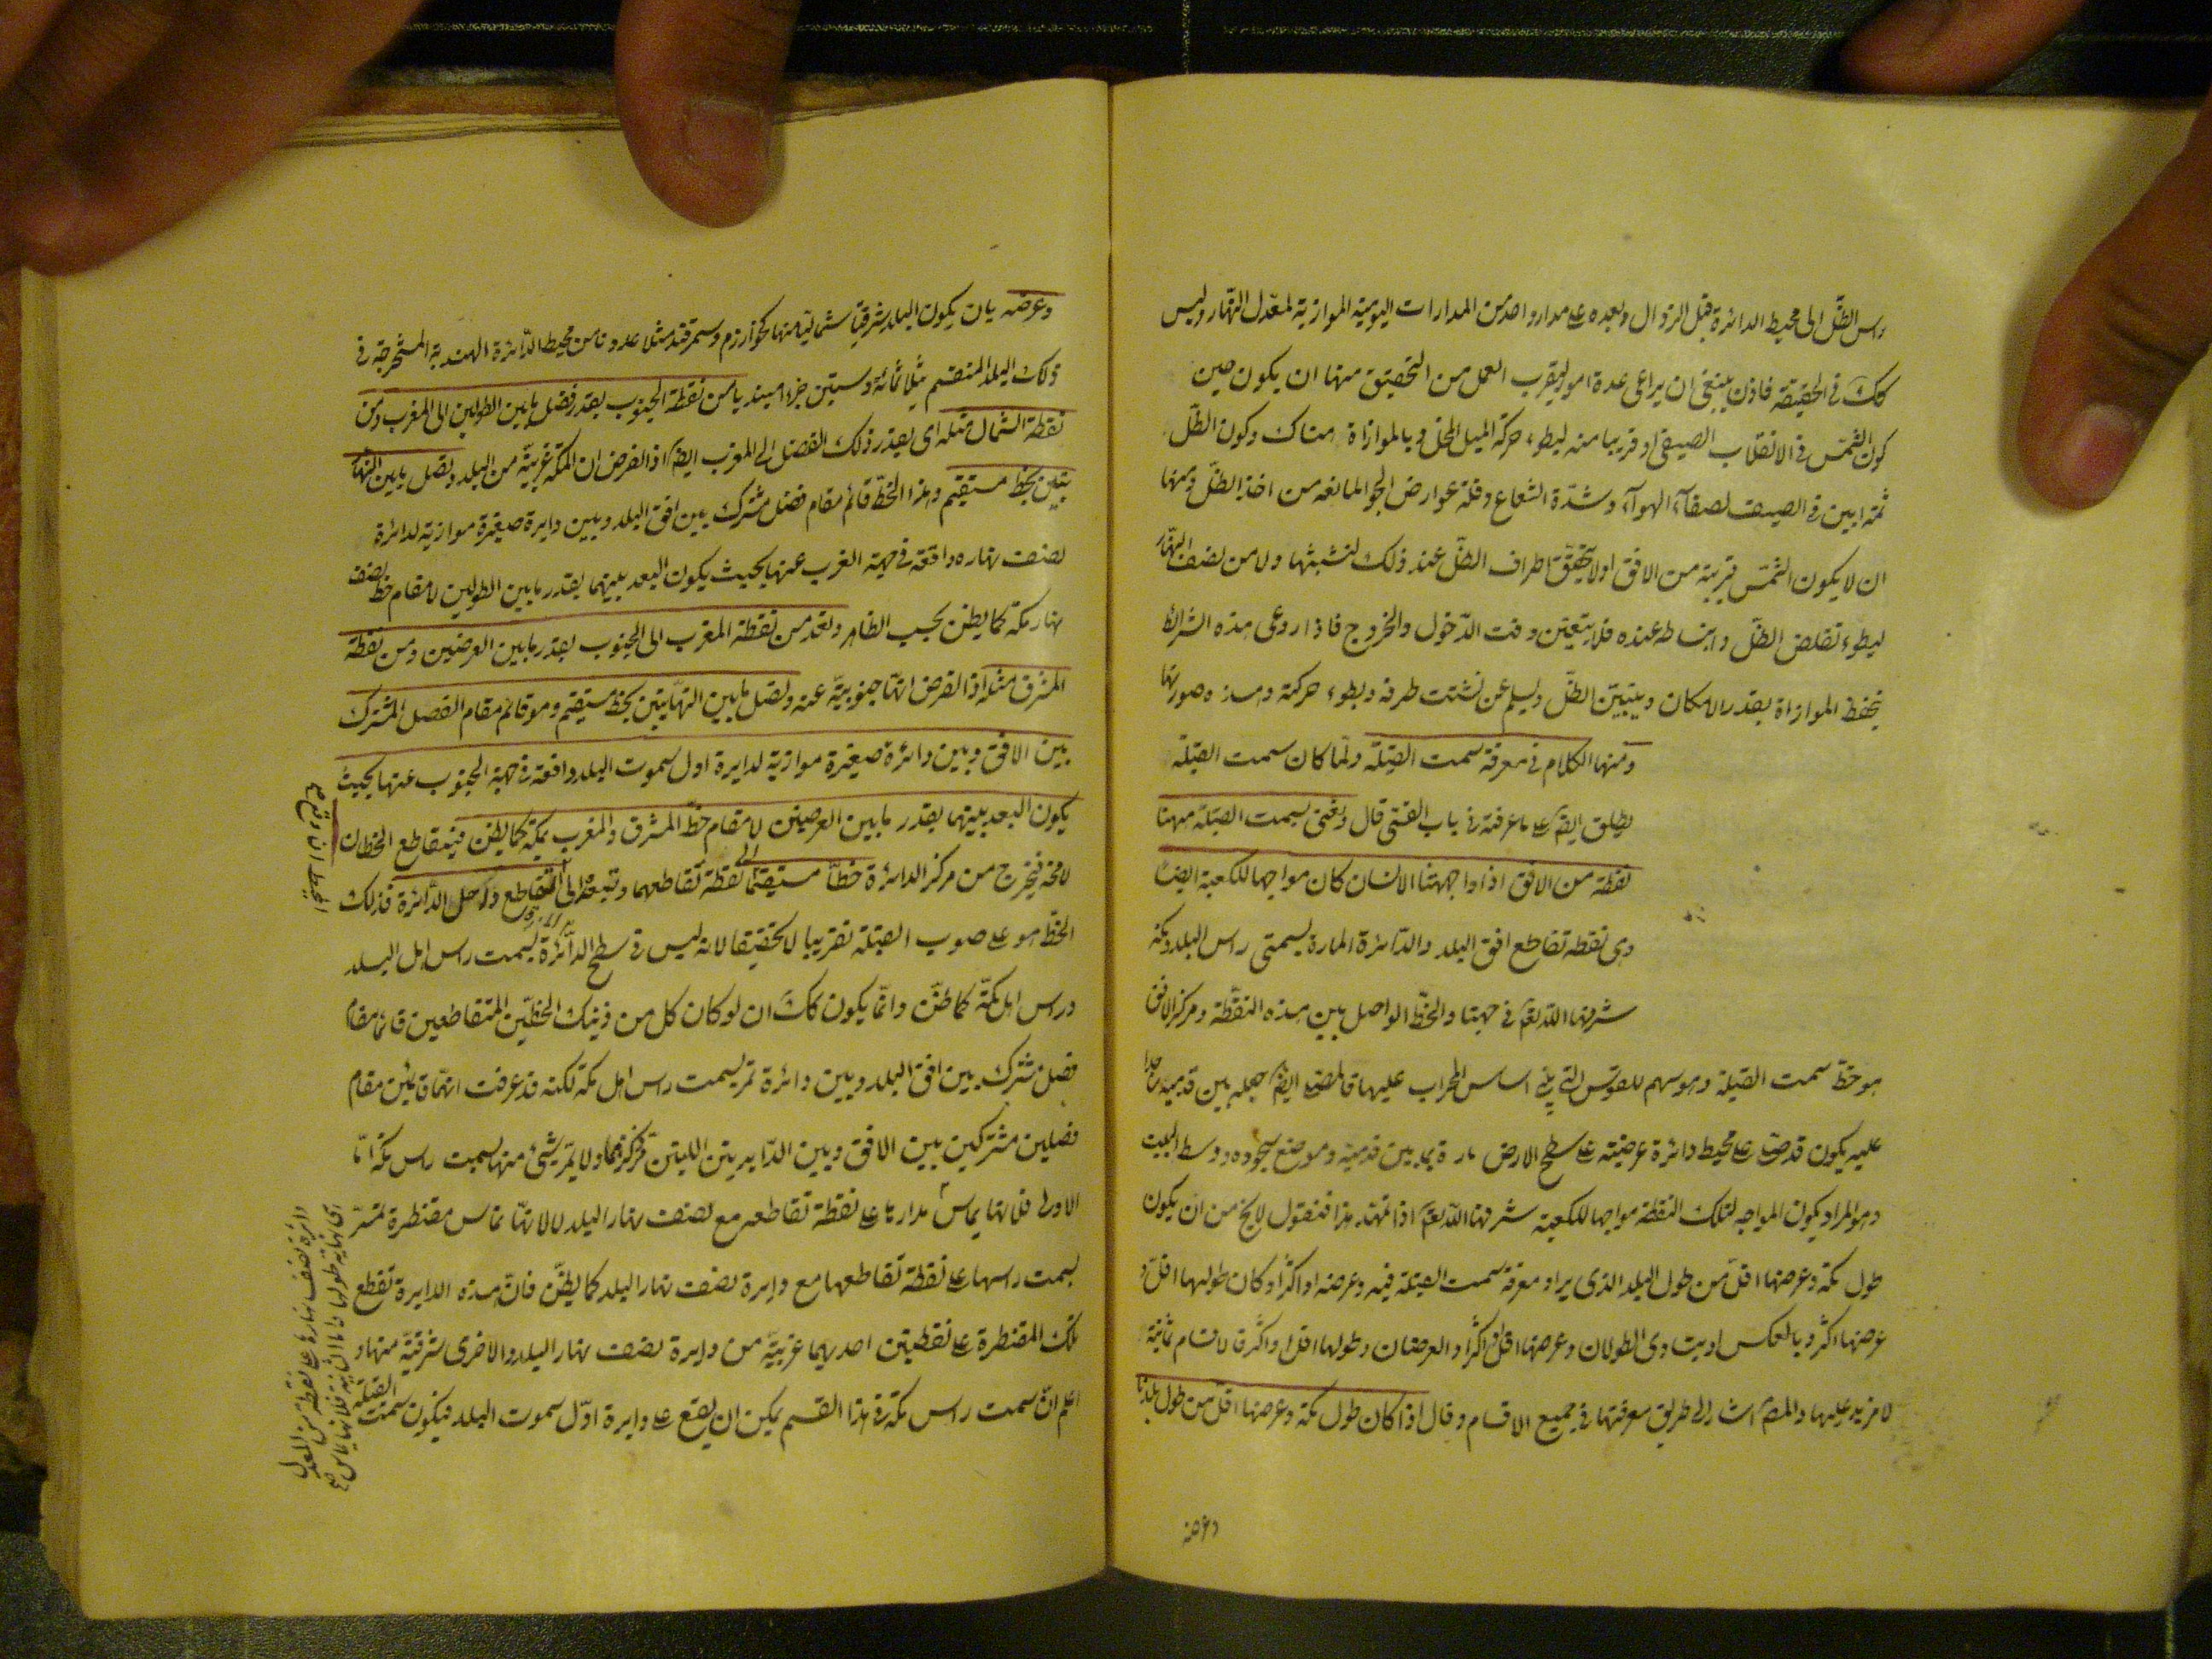 راس الظل الى محيط الدائرة قبل الزوال وبعده على مدار واحد من المدارات اليومية الموازية لمعدل النهار وليس
كك في الحقيقة فاذن ينبغى ان يراعى عدة امور ليقرب العمل من التحقيق منها ان يكون حين
كون الشمس في الانقلاب الصيفى او قريبا منه لبطوء حركة الميل المخل بالموازاة هناك وكون الظل
ثمه ابين في الصيف لصفآء الهوآء وشدة الشعاع وقلة عوارض الجو المانعة من اخذ الظل ومنها
ان لا يكون الشمس قريبة من الافق اولا يتحقق اطراف الظل عند ذلك لتشبثها ولا من نصف النهار
لبطوء تقلص الظل وانبساطه عنده فلا يتعين وقت الدخول والخروج فاذا روعى هذه الشرائط
تحفظ الموازاة بقدر الامكان ويتبين الظل ويسلم عن تشتت طرفه وبطوء حركته وهذه صورتها
ومنها الكلام في معرفة سمت القبلة ولما كان سمت القبلة
يطلق ايضا على ما عرفته في باب القسى قال ونعنى بسمت القبلة ههنا
نقطة من الافق اذا واجهها الانسان كان مواجها للكعبة ايضا
وهى نقطة تقاطع افق البلد والدائرة المارة بسمتى راس البلد ومكة
شرفها الله تعالى في جهتها والخط الواصل بين هذه النقطة ومركز الافق
هو خط سمت القبلة وهو سهم للقوس التى بنى اساس المحراب عليها فالمصلى ايضا جعله بين قدميه ساجدا
عليه يكون قد صلى على محيط دائرة عرضية على سطح الارض مارة بما بين قدميه وموضع سجوده ووسط البيت
وهو المراد بكون المواجه لتلك النقطة مواجها للكعبة شرفها الله تعالى اذا تمهد هذا فنقول لا يخ من ان يكون
طول مكة وعرضها اقل من طول البلد الذى يراد معرفة سمت القبلة فيه وعرضه او اكثر او كان طولها اقل و
عرضها اكثر وبالعكس او يتساوى الطولان وعرضها اقل او اكثر او العرضان وطولها اقل او اكثر فالاقسام ثمانية
لا مزيد عليها والمصـ اشار الى طريق معرفتها في جميع الاقسام وقال اذا كان طول مكة وعرضها اقل من طول بلدنا
وعرضه
وعرضه بان يكون البلد شرقيا شماليا منها كخوارزم وسمرقند مثلا عددنا من محيط الدائرة الهندية المستخرجة في
ذلك البلد المنقسم بثلاثمائة وستين جزءا مبتديا من نقطة الجنوب بقدر فضل ما بين الطولين الى المغرب ومن
نقطة الشمال مثله اى بقدر ذلك الفضل الى المغرب ايضا اذا لفرض ان المكة غربية من البلد ونصل ما بين النها
يتين بخط مستقيم وهذا الخط قائم مقام فضل مشترك بين افق البلد وبين دايرة صغيرة موازية لدائرة
نصف نهاره واقعة في جهة الغرب عنها بحيث يكون البعد بينهما بقدر ما بين الطولين لا مقام خط نصف
نهار مكة كما يظن بحسب الظاهر ونعد من نقطة المغرب الى الجنوب بقدر ما بين العرضين ومن نقطة
المشرق مثله اذا لفرض انها جنوبية عنه ونصل ما بين النهايتين بخط مستقيم وهو قائم مقام الفصل المشترك
بين الافق وبين دائرة صغيرة موازية لدايرة اول سموت البلد واقعة في جهة الجنوب عنها بحيث
يكون البعد بينهما بقدر ما بين العرضين لا مقام خط المشرق والمغرب بمكة كما يظن فيتقاطع الخطان
لا محة فيخرج من مركز الدائرة خطا مستقيما الى نقطة تقاطعهما وننفذه الى التقاطع داخل الدائرة فذلك
الخط هو على صوب القبلة تقريبا لا تحقيقا لانه ليس في سطح الدائرة بسمت راس اهل البلد
وراس اهل مكة كما ظن وانما يكون كك ان لو كان كل من ذينك الخطين المتقاطعين قائما مقام
فصل مشترك بين افق البلد وبين دائرة تمر بسمت راس اهل مكة لكنه قد عرفت انهما قائمين مقام
فصلين مشتركين بين الافق وبين الدايرتين اللتين ذكرناهما ولا يمر شئ منهما بسمت راس مكة اما
الاولى فلانها يماس مدارها على نقطة تقاطعه مع نصف نهار البلد لا لانها تماس مقنطرة تمر
بسمت راسها على نقطة تقاطعها مع دايرة نصف نهار البلد كما يظن فان هذه الدايرة تقطع
تلك المقنطرة على نقطتين احديهما غربية من دايرة نصف نهار البلد والاخرى شرقية منها و
اعلم ان سمت راس مكة في هذا القسم يمكن ان يقع على دايرة اول سموت البلد فيكون سمت القبلة